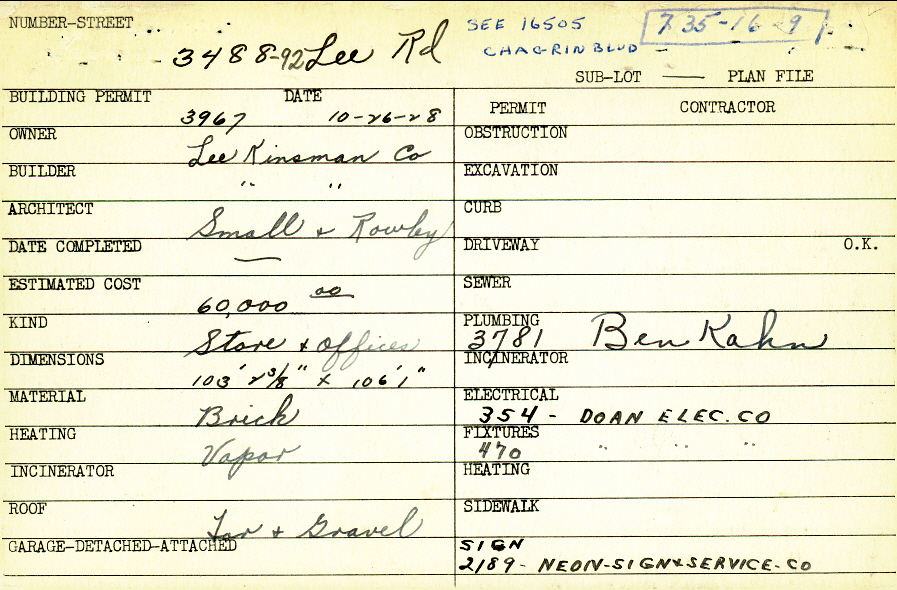 NUMBER-STREET
3488-92 Lee Rd
SEE 16505
CHAGRIN BLVD
735-16-9
SUB-LOT — PLAN FILE
BUILDING PERMIT DATE
3967 10-26-28
OWNER
Lee Kinsman Co
BUILDER
" "
ARCHITECT
Small & Rowley
DATE COMPLETED
—
ESTIMATED COST
60,000 00
KIND
Store & Offices
DIMENSIONS
103' 2 3/8" x 106'1"
MATERIAL
Brick
HEATING
Vapor
INCINERATOR
ROOF
Tar & Gravel
GARAGE-DETACHED-ATTACHED
PERMIT CONTRACTOR
OBSTRUCTION
EXCAVATION
CURB
DRIVEWAY O.K.
SEWER
PLUMBING
3781 Ben Kahn
INCINERATOR
ELECTRICAL
354 - DOAN ELEC. CO
FIXTURES
470 " " "
HEATING
SIDEWALK
SIGN
2189 - NEON-SIGN & SERVICE-CO